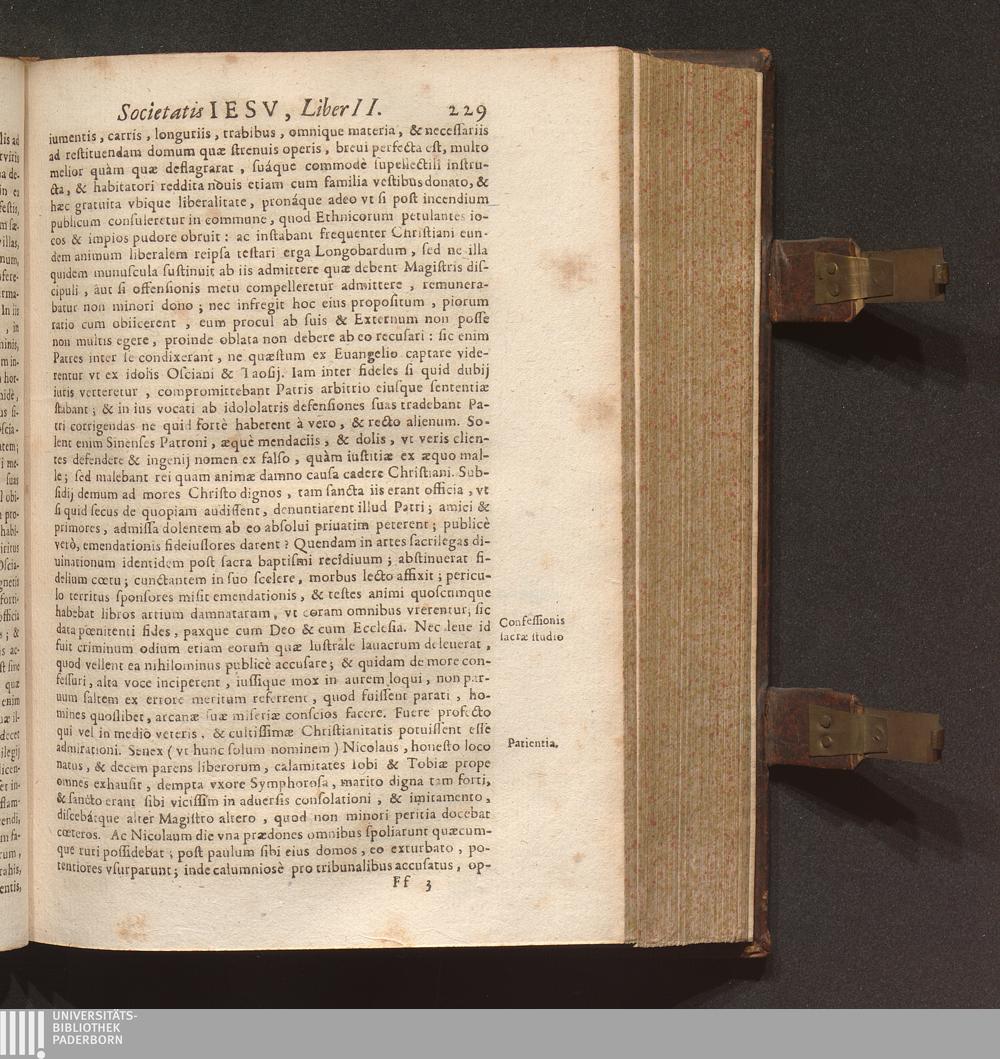 Societatis IESV, Liber II. 229
iumentis, carris, longuriis, trabibus, omnique materia, & necessariis
ad restituendam domum quæ strenuis operis, breui perfecta est, multo
melior quàm quæ deflagrarat, suáque commodè supellectili instru-
cta, & habitatori reddita nouis etiam cum familia vestibus donato, &
hæc gratuita vbique liberalitate, pronáque adeo vt si post incendium
publicum consuleretur in commune, quod Ethnicorum petulantes io-
cos & impios pudore obruit: ac instabant frequenter Christiani eun-
dem animum liberalem reipsa testari erga Longobardum, sed ne illa
quidem munuscula sustinuit ab iis admittere quæ debent Magistris dis-
cipuli, aut si offensionis metu compelleretur admittere, remunera-
batur non minori dono; nec infregit hoc eius propositum, piorum
ratio cum obiicerent, eum procul ab suis & Externum non posse
non multis egere, proinde oblata non debere ab eo recusari: sic enim
Patres inter se condixerant, ne quæstum ex Euangelio captare vide-
rentur vt ex idolis Osciani & Taosij. Iam inter fideles si quid dubij
iutis verteretur, compromittebant Patris arbitrio eiusque sententiæ
stabant; & in ius vocati ab idololatris defensiones suas tradebant Pa-
tri corrigendas ne quid fortè haberent à vero, & recto alienum. So-
lent enim Sinenses Patroni, æquè mendaciis, & dolis, vt veris clien-
tes defendere & ingenij nomen ex falso, quàm iustitiæ ex æquo mal-
le; sed malebant rei quam animæ damno causa cadere Christiani. Sub-
sidij demum ad mores Christo dignos, tam sancta iis erant officia, vt
si quid secus de quopiam audissent, denuntiarent illud Patri; amici &
primores, admissa dolentem ab eo absolui priuatim peterent; publicè
verò, emendationis fideiussores darent? Quendam in artes sacrilegas di-
uinationum identidem post sacra baptismi recidiuum; abstinuerat fi-
delium cœtu; cunctantem in suo scelere, morbus lecto affixit; pericu-
lo territus sponsores misit emendationis, & testes animi quoscumque
habebat libros artium damnataram, vt coram omnibus vrerentur; sic
data pœnitenti fides, paxque cum Deo & cum Ecclesia. Nec leue id
Confessionis
sacræ studio
fuit criminum odium etiam eorum quæ lustrale lauacrum deleuerat,
quod vellent ea nihilominus publicè accusare; & quidam de more con-
fessuri, alta voce inciperent, iussique mox in aurem loqui, non par-
uum saltem ex errore meritum referrent, quod fuissent parati, ho-
mines quoslibet, arcanæ suæ miseriæ conscios facere. Fuere profecto
qui vel in medio veteris, & cultissimæ Christianitatis potuissent esse
admirationi. Senex (vt hunc solum nominem) Nicolaus, honesto loco
Patientia.
natus, & decem parens liberorum, calamitates Iobi & Tobiæ prope
omnes exhausit, dempta vxore Symphorosa, marito digna tam forti,
& sancto erant sibi vicissim in aduersis consolationi, & imitamento,
discebátque alter Magistro altero, quod non minori peritia docebat
cœteros. Ac Nicolaum die vna prædones omnibus spoliarunt quæcum-
que ruri possidebat; post paulum sibi eius domos, eo exturbato, po-
tentiores vsurparunt; inde calumniosè pro tribunalibus accusatus, op-
Ff 3
UNIVERSITÄTS-
BIBLIOTHEK
PADERBORN